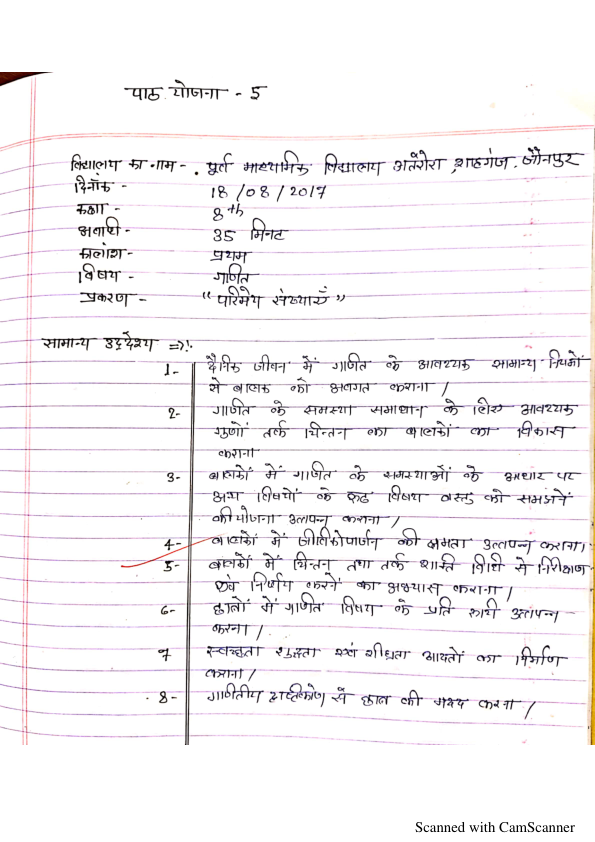 पाठ योजना - 5
विद्यालय का नाम - . पूर्व माध्यमिक विद्यालय अतरौरा, शाहगंज, जौनपुर
दिनाँक - 18/08/2017
कक्षा - 8th
अवधि - 35 मिनट
कालांश - प्रथम
विषय - गणित
प्रकरण - “परिमेय संख्याएँ”
सामान्य उद्देश्य ⇒:-
1- दैनिक जीवन में गणित के आवश्यक सामान्य नियमों
से बालक को अवगत कराना /
2- गणित के समस्या समाधान के लिए आवश्यक
गुणों तर्क चिन्तन का बालकों का विकास
कराना
3- बालकों में गणित के समस्याओं के आधार पर
अन्य विषयों के विषय वस्तु को समझने
की योजना उत्पन्न कराना /
4- बालकों में जीविकोपार्जन की क्षमता उत्पन्न कराना।
5- बालकों में चिन्तन तथा तर्क शक्ति विधि से निरीक्षण
एवं निर्णय करने का अभ्यास कराना /
6- छात्रों में गणित विषय के प्रति रूची उत्पन्न
करना /
7 स्वच्छता शुद्धता एवं शीघ्रता आदतों का निर्माण
कराना /
8- गणितीय दृष्टिकोण से छात्र की मदद करना /
Scanned with CamScanner